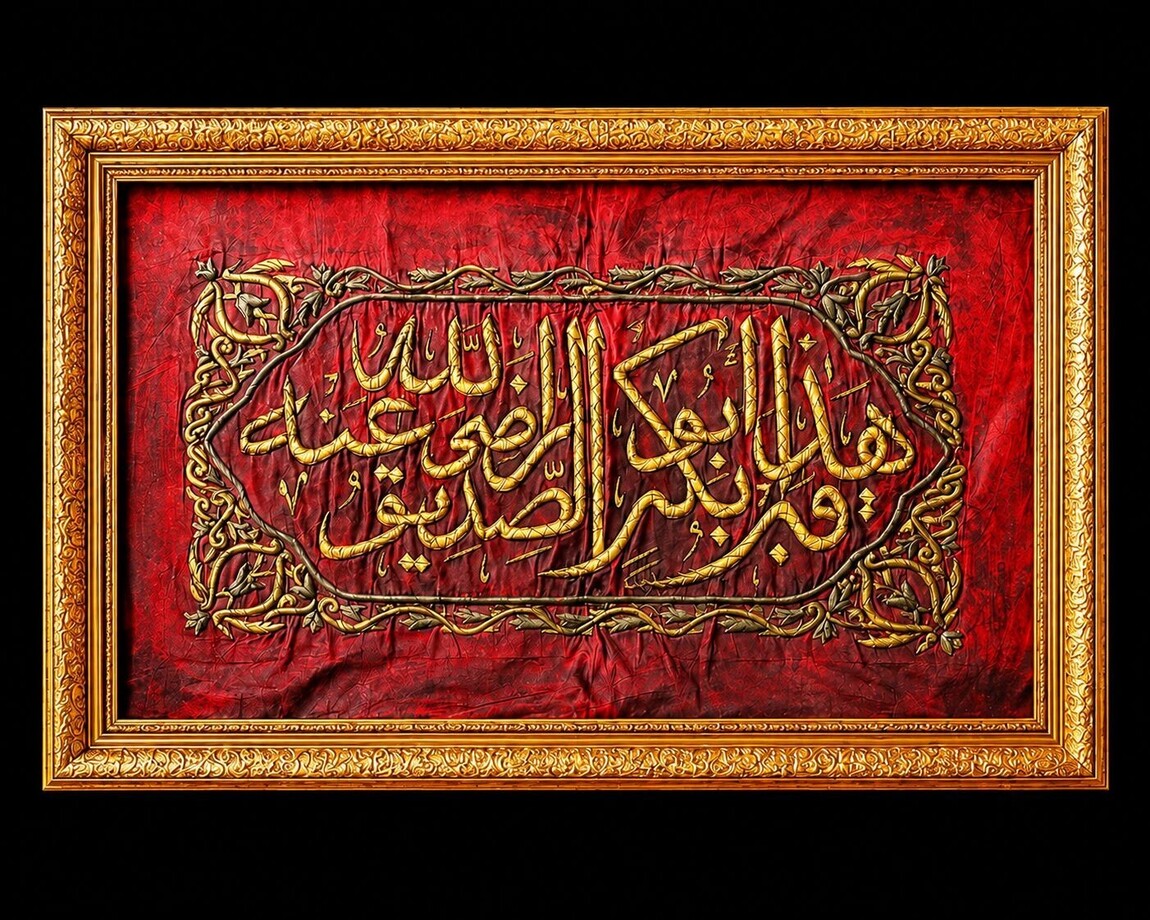 هذا قبر ابو بكر الصديق رضي الله عنه